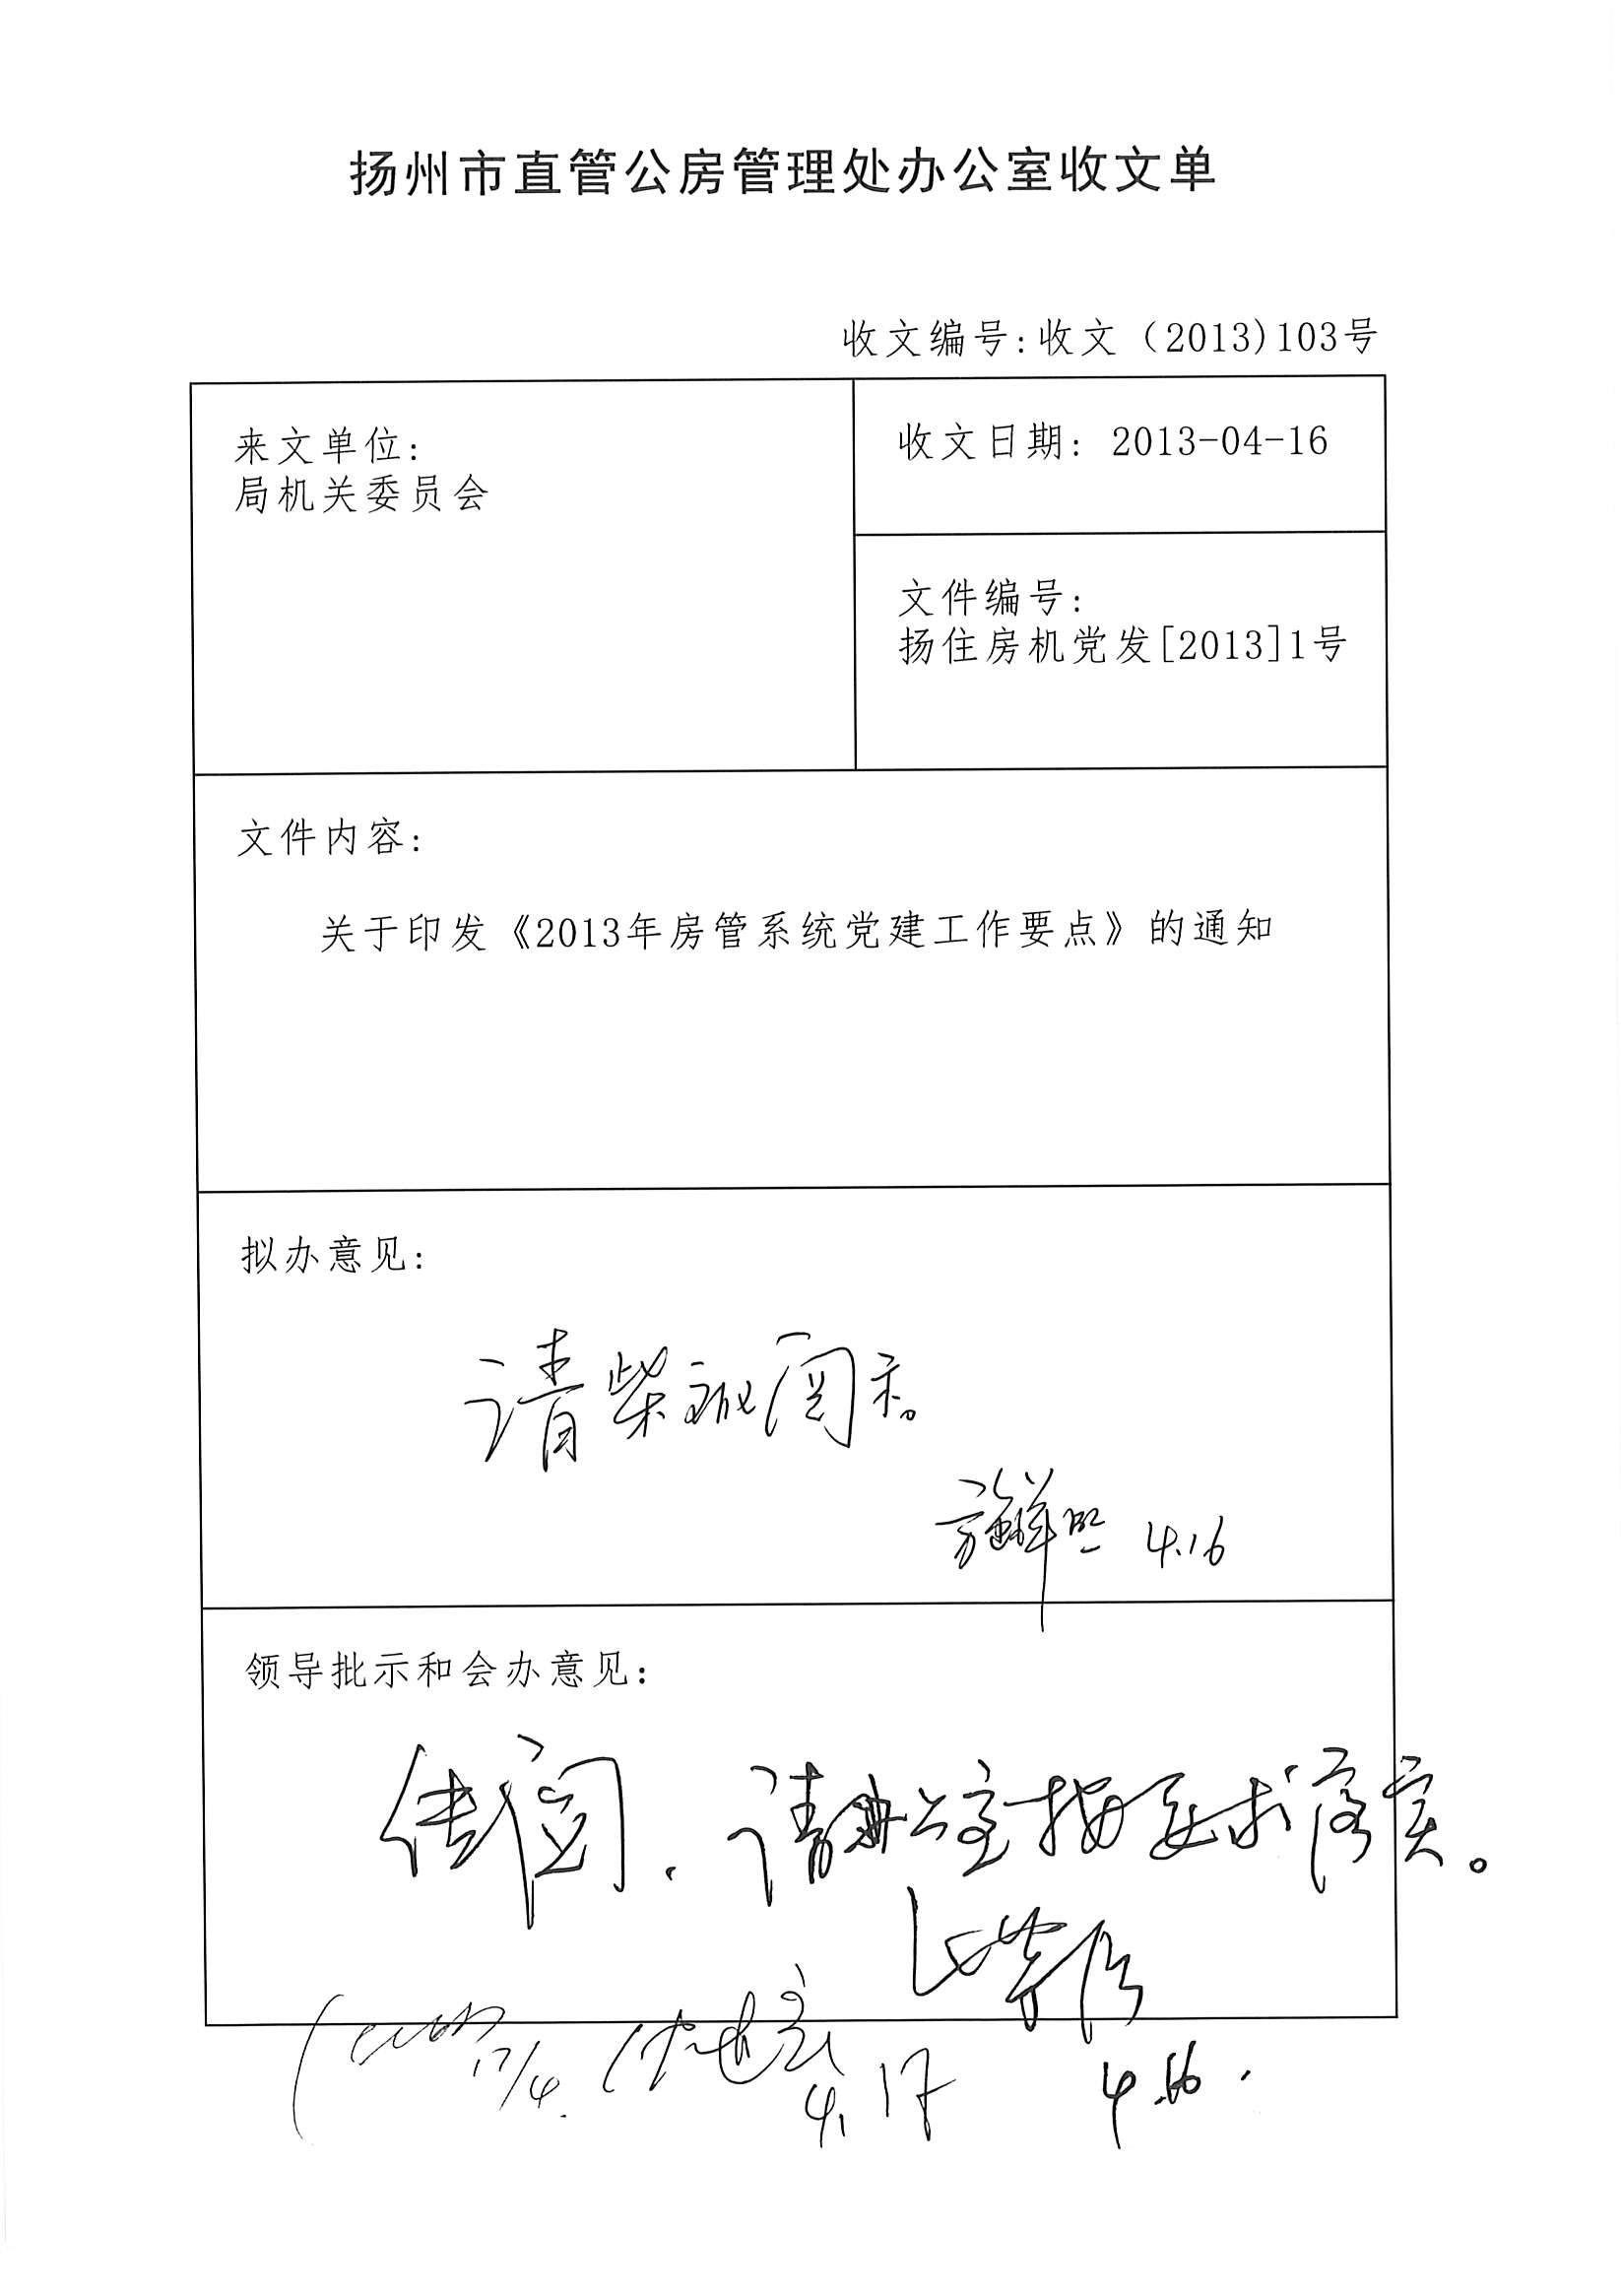 扬州市直管公房管理处办公室收文单
收文编号:收文（2013)103号
来文单位:
局机关委员会
收文日期: 2013-04-16
文件编号:
扬住房机党发[2013]1号
文件内容:
关于印发《2013年房管系统党建工作要点》的通知
拟办意见:
请柴主阅示。
4.16
领导批示和会办意见:
传阅. 请办公室按要求落实。
4.16.
17/4.
4.17